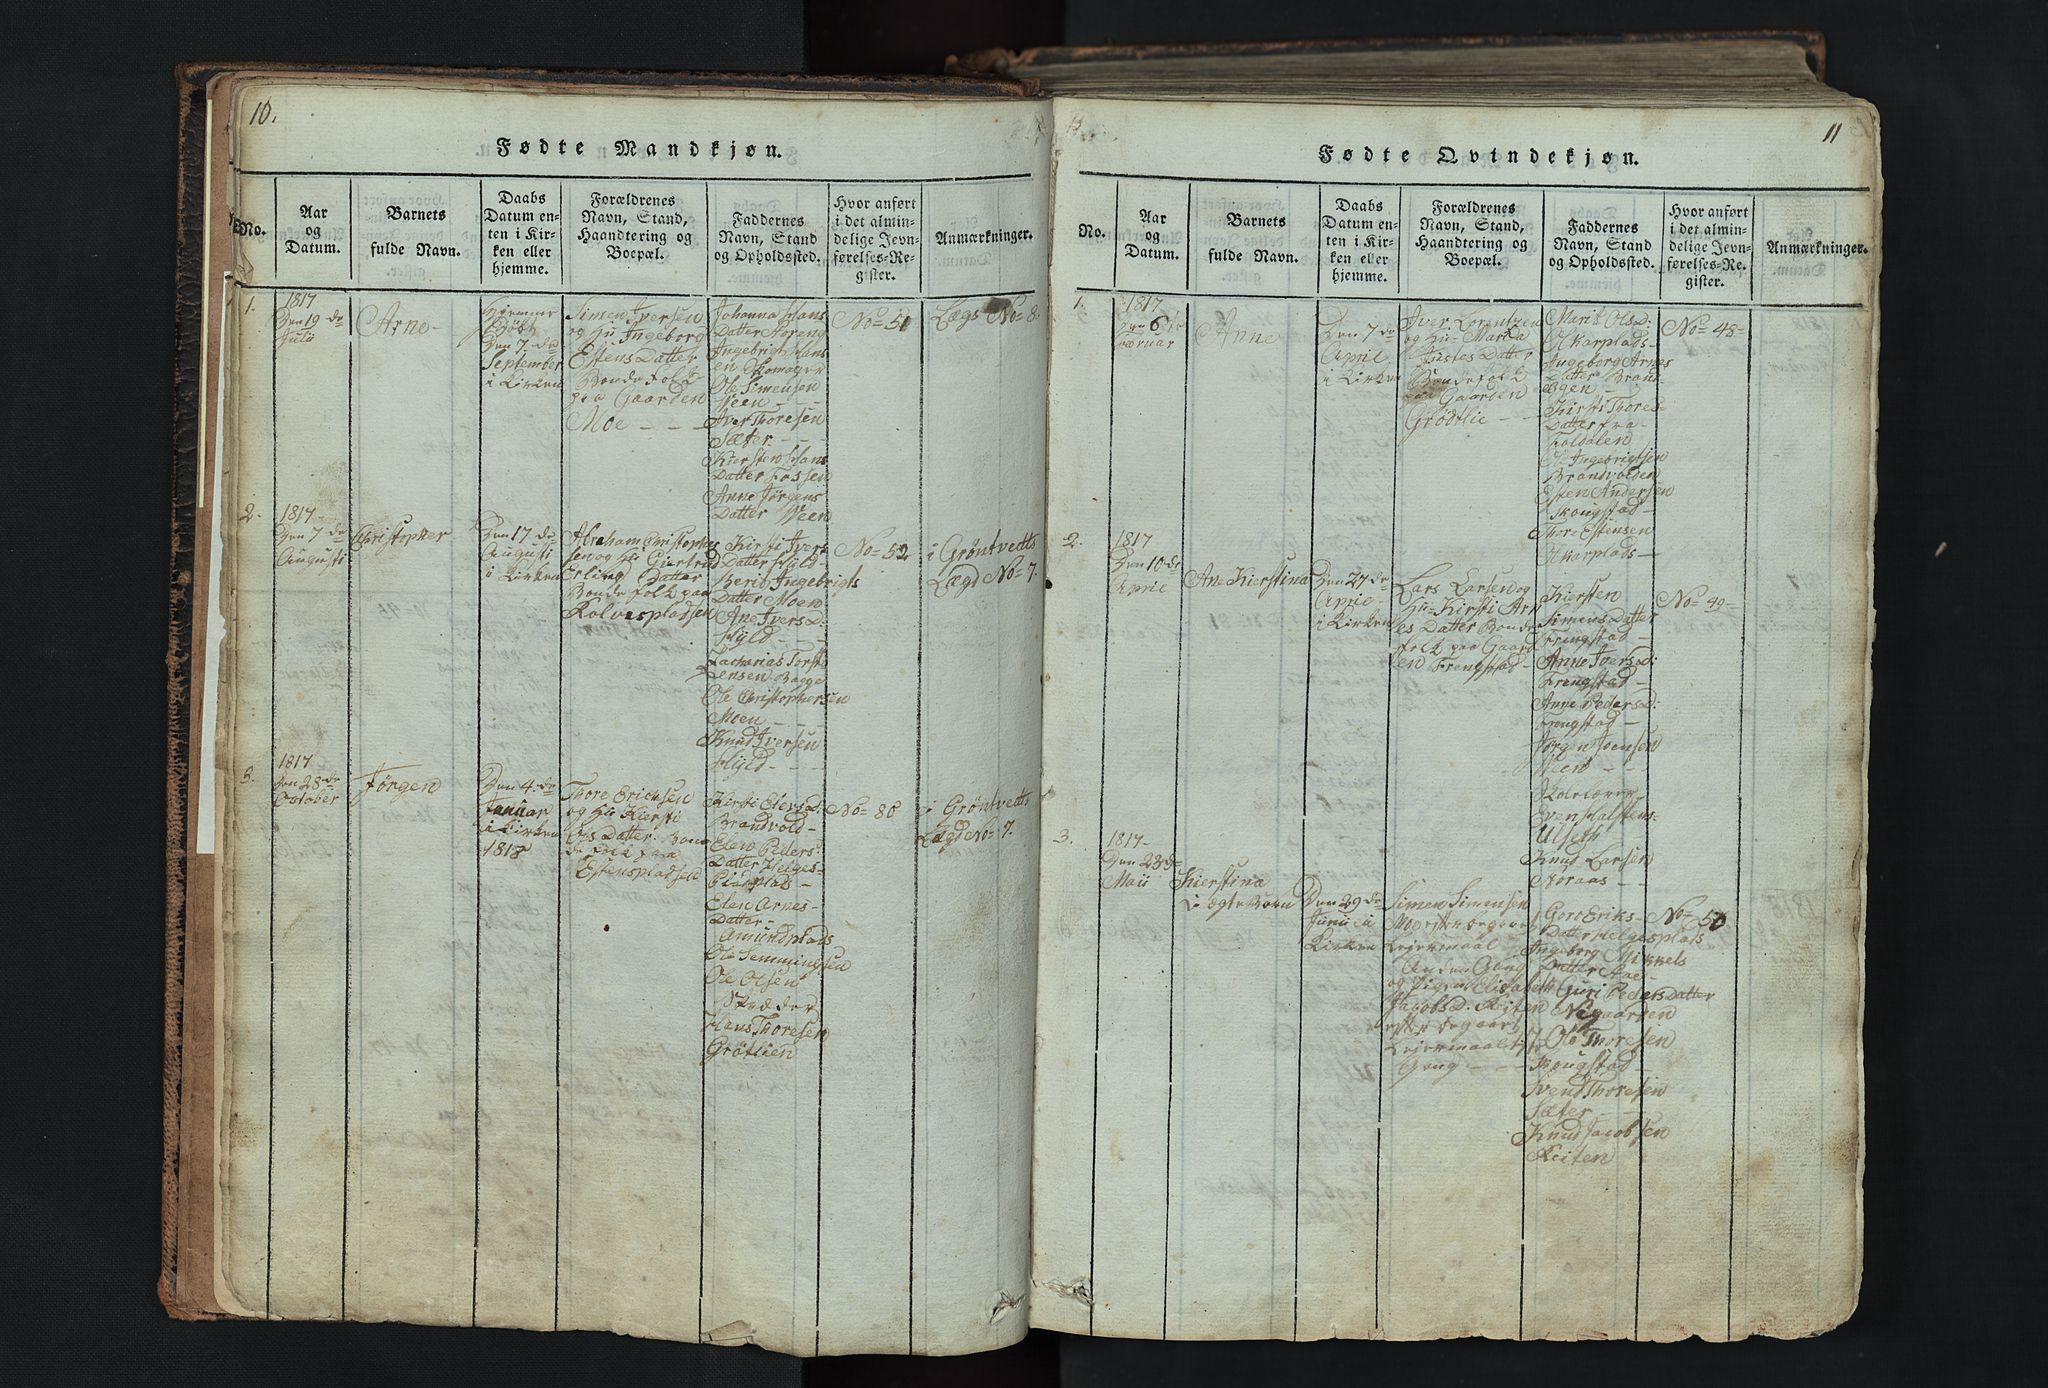 10.
Fødte Mandkjøn.
No.
Aar
og
Datum.
Barnets
fulde Navn.
Daabs
Datum en-
ten i Kir-
ken eller
hjemme.
Forældrenes
Navn, Stand,
Haandtering og
Boepæl.
Faddernes
Navn, Stand
og Opholdssted.
Hvor anført
i det almin-
delige Jevn-
førelses-Re-
gister.
Anmærkninger.
1.
1817
Den 19 de
Julii
Arne
Hjemme
Døbt
Den 7. de
September
i Kirken
Simen Iversen
og Hu Ingeborg
Estens Datter
Bonde folk
paa Gaarden
Moe - - -
Johanna Hans
Datter
Ingebrigt Hans
en Skomager
Ole Simensen
Ween - - -
Iver Thoresen
Sæter - - -
Kiersten Hans
Datter Fossen
Anne Jørgens
Datter Ween
No= 51
Lægs No= 8.
2.
1817
Den 7 de
Augusti
Christopher
Den 17 de
Augusti
i Kirken
Abraham Christophe
sen og Hu Giertrud
Erling Datter
Bonde folk paa
Kolvespladsen
Kirsti Ivers
Datter Hyld-
Berit Ingebrigts
Datter Moen
Ane Ivers D:
Hyld - - -
Zacharias Torst
ensen Bagge
Ole Christophersen
Moen - - -
Knud Iversen
Hyld - - -
No= 52
i Gröntvedts
Lægd No= 7.
3.
1817
Den 28 de
October
Jørgen
Den 4. de
Januar
i Kirken
1818
Thore Ericksen
og Hu Kiersti
Ols Datter. Bon
de folk paa
Estenspladseld
Kirsti Eders d:
Brandvold-
Elen Peders
Datter Helges-
Pladsplads-
Elen Arnes-
Datter-
Amundplads
Ole Semmingsen
Ole Olsen
Hans Thoresen
Grøtlien
No= 80
i Gröntvedts
Lægd No= 7.
11
Fødte Qvindekjøn.
No.
Aar
og
Datum.
Barnets
fulde Navn.
Daabs
Datum en-
ten i Kir-
ken eller
hjemme.
Forældrenes
Navn, Stand,
Haandtering og
Boepæl.
Faddernes
Navn, Stand
og Opholdssted.
Hvor anført
i det almin-
delige Jevn-
førelses-Re-
gister.
Anmærkninger.
1.
1817
Den 6 te
Anne
Den 7 de
April
i Kirken
Iver Lorentzen
og Hu- Marta
Datter
Bondefolk
paa Gaarden
Grødtlie - -
Marit Ols D:
Olkarplads-
Ingeborg Arnes
Datter Brand
Øgen
Kirsti Thores-
Datter fra
Foldalen
Ole Ingebrigtsen
Brandvolden
Esten Andersen
Skougstad-
Thor Estensen
Olkarplads-
No= 48-
2.
1817
Den 10 de
April
Ane Kierstina
Den 27 de
April
i Kirken
Lars Larsen og
Hu= Kirsti Arn
es Datter Bonde
folk paa Gaard
en Frengstad
Kiersten
Simens Datter
Frengstad-
Anne Ivers d:
Frengstad-
Anne Peders d:
Frengstad-
Jørgen Joensen
Ween - - -
Even Halstens-
Ulseth
Knud Larsen
Noraas - -
No= 49-
3.
1817-
Den 23 de
Maii
Kierstina
u ægte Barn
Den 29 de
Junii i
Kirken
Simen Simensen
Leiermaal
Anden Gang
og Pigen Elisabeth
Jacobs D. Kiiten
Leiermaal
Gang - - -
Goro Eriks-
Datter Helgesplads
Ingeborg Mikkels
Datter Aae-
Guri Peders Datter
Nigaarden
Ole Thoresen
Skougstad-
Svend Thoresen
Sæter
Knud Jacobsen
Kiiten
No= 50